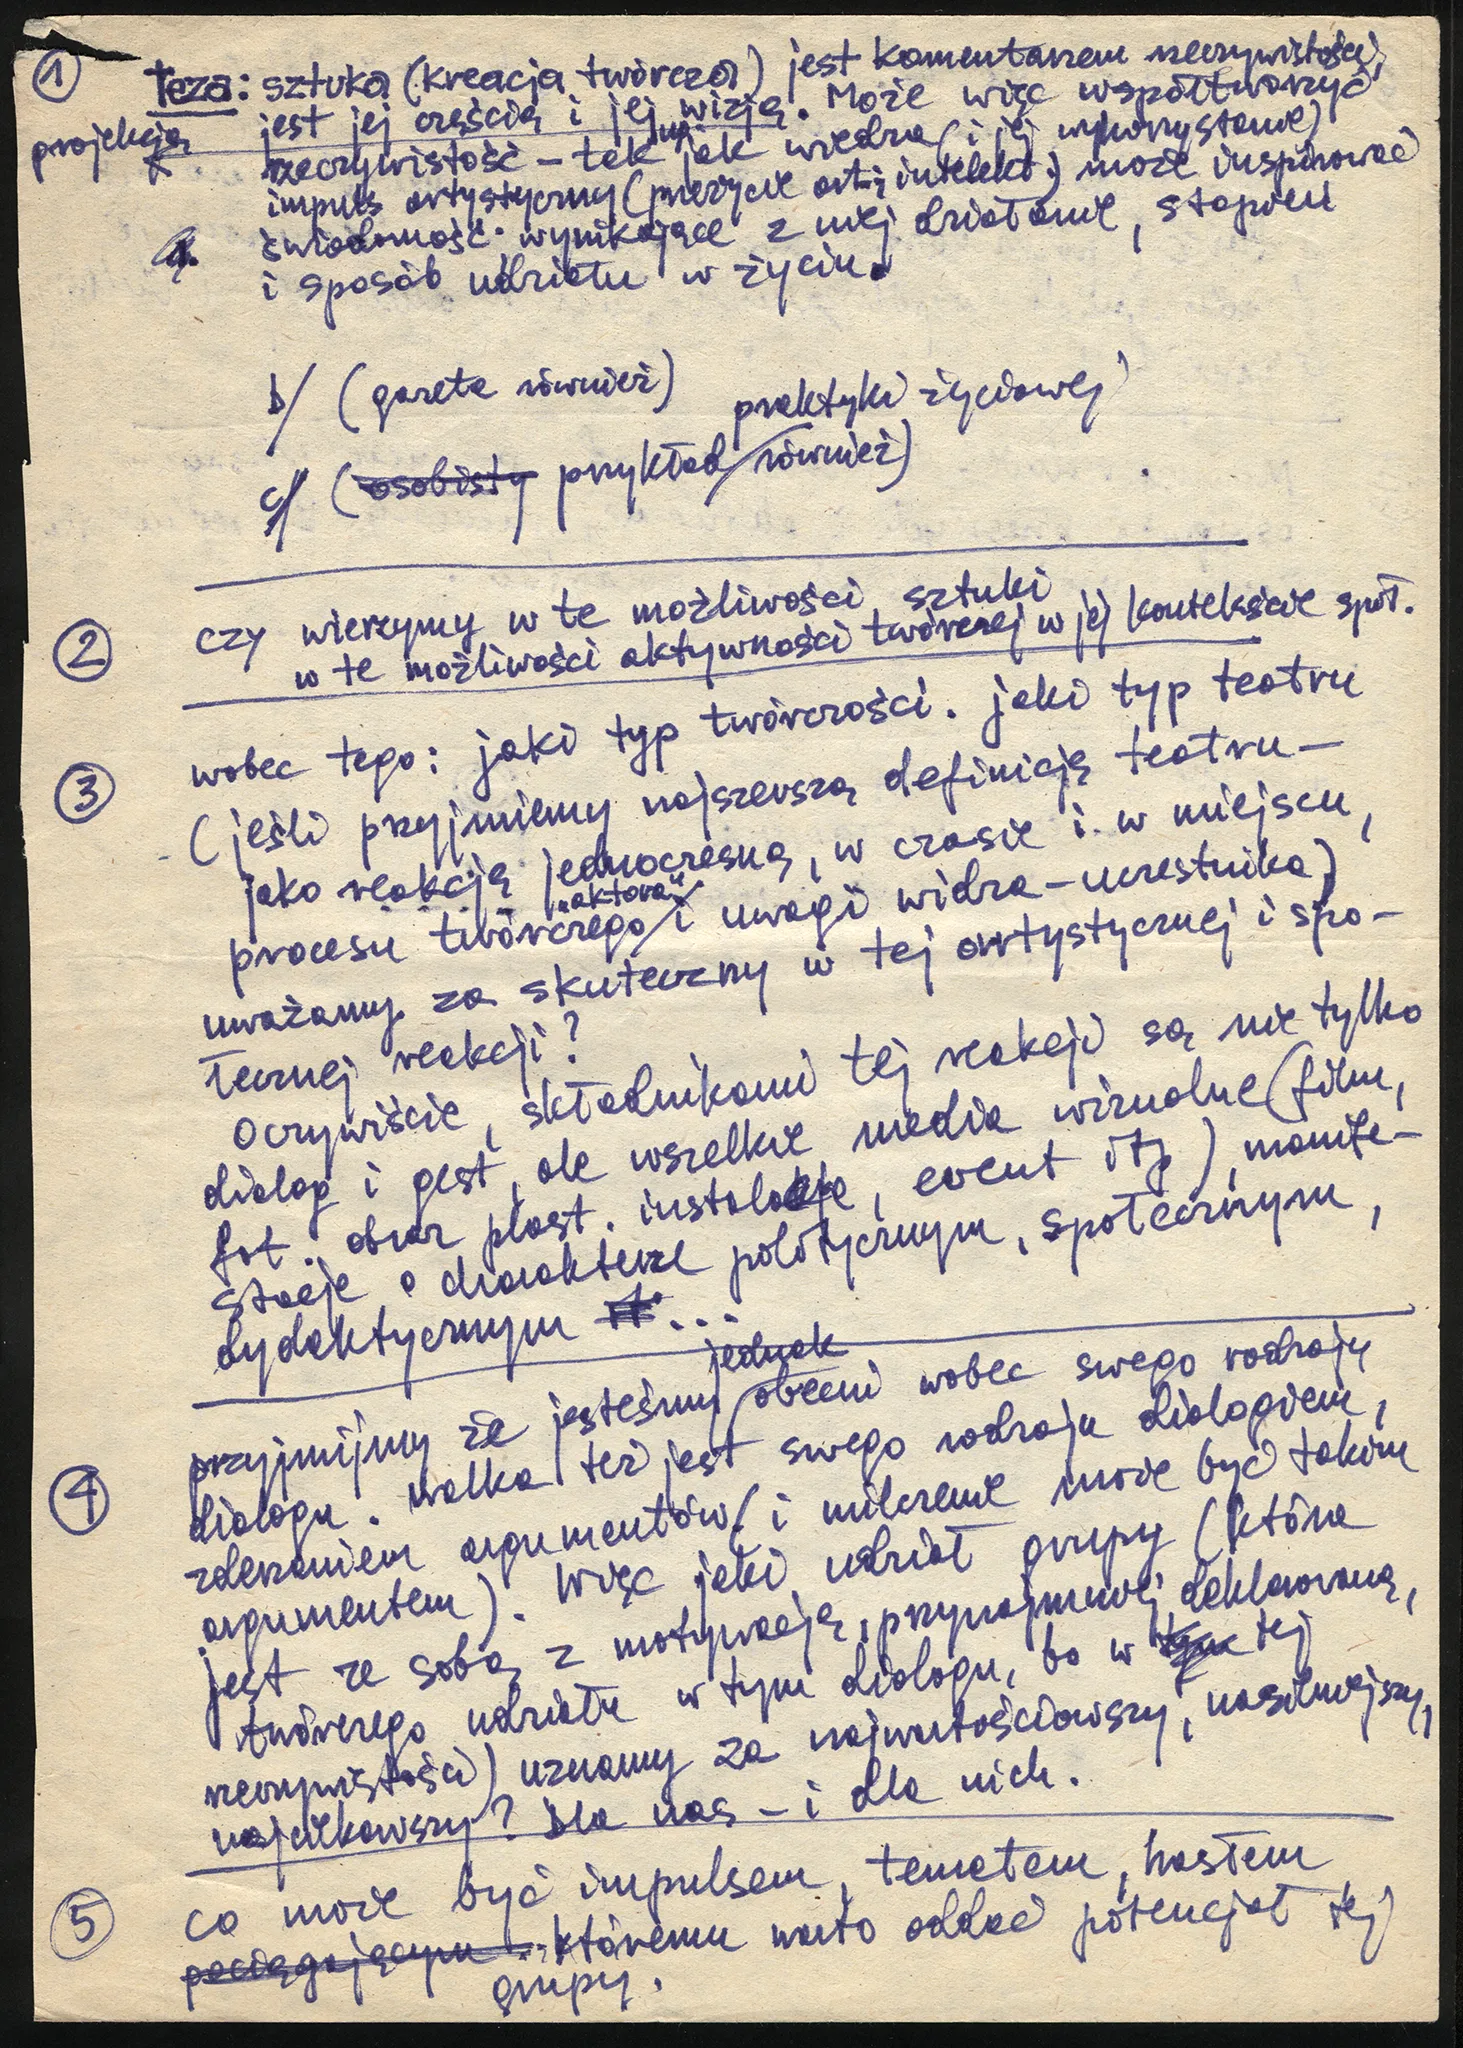 ①
Teza: sztuka (kreacja twórcza) jest komentarzem rzeczywistości,
jest jej częścią i jej wizją. Może więc współtworzyć
projekcją
rzeczywistość – tak jak wiedza (i jej wykorzystanie)
np.
impuls artystyczny (przeżycie art. i intelekt.) może inspirować
a. świadomość wynikające z niej działanie, stopień
i sposób udziału w życiu.
b/ (gazeta również)
praktyki życiowej
c/ (osobisty przykład również)
② czy wierzymy w te możliwości sztuki
w te możliwości aktywności twórczej w jej kontekście społ.
③ wobec tego: jaki typ twórczości. jaki typ teatru
(jeśli przyjmiemy najszerszą definicją teatru –
jako reakcją jednoczesną, w czasie i w miejscu,
„aktora”
procesu twórczego i uwagi widza – uczestnika)
uważamy za skuteczny w tej artystycznej i spo-
łecznej reakcji?
Oczywiście, składnikami tej reakcji są nie tylko
dialog i gest, ale wszelkie media wizualne (film,
fot. obraz plast. instalacje, event itp), manife-
stacje o charakterze politycznym, społecznym,
dydaktycznym it. ...
jednak
④ przyjmijmy że jesteśmy obecni wobec swego rodzaju
dialogu. Walka też jest swego rodzaju dialogiem,
zderzeniem argumentów (i milczenie może być takim
argumentem). Więc jaki udział grupy (która
jest ze sobą z motywacją, przynajmniej deklarowaną,
twórczego udziału w tym dialogu, bo w tym tej
rzeczywistości) uznamy za najwartościowszy, nasilniejszy,
najciekawszy? Dla nas – i dla nich.
⑤ co może być impulsem, tematem, hasłem
pociągającym ... któremu warto oddać potencjał tej
grupy.